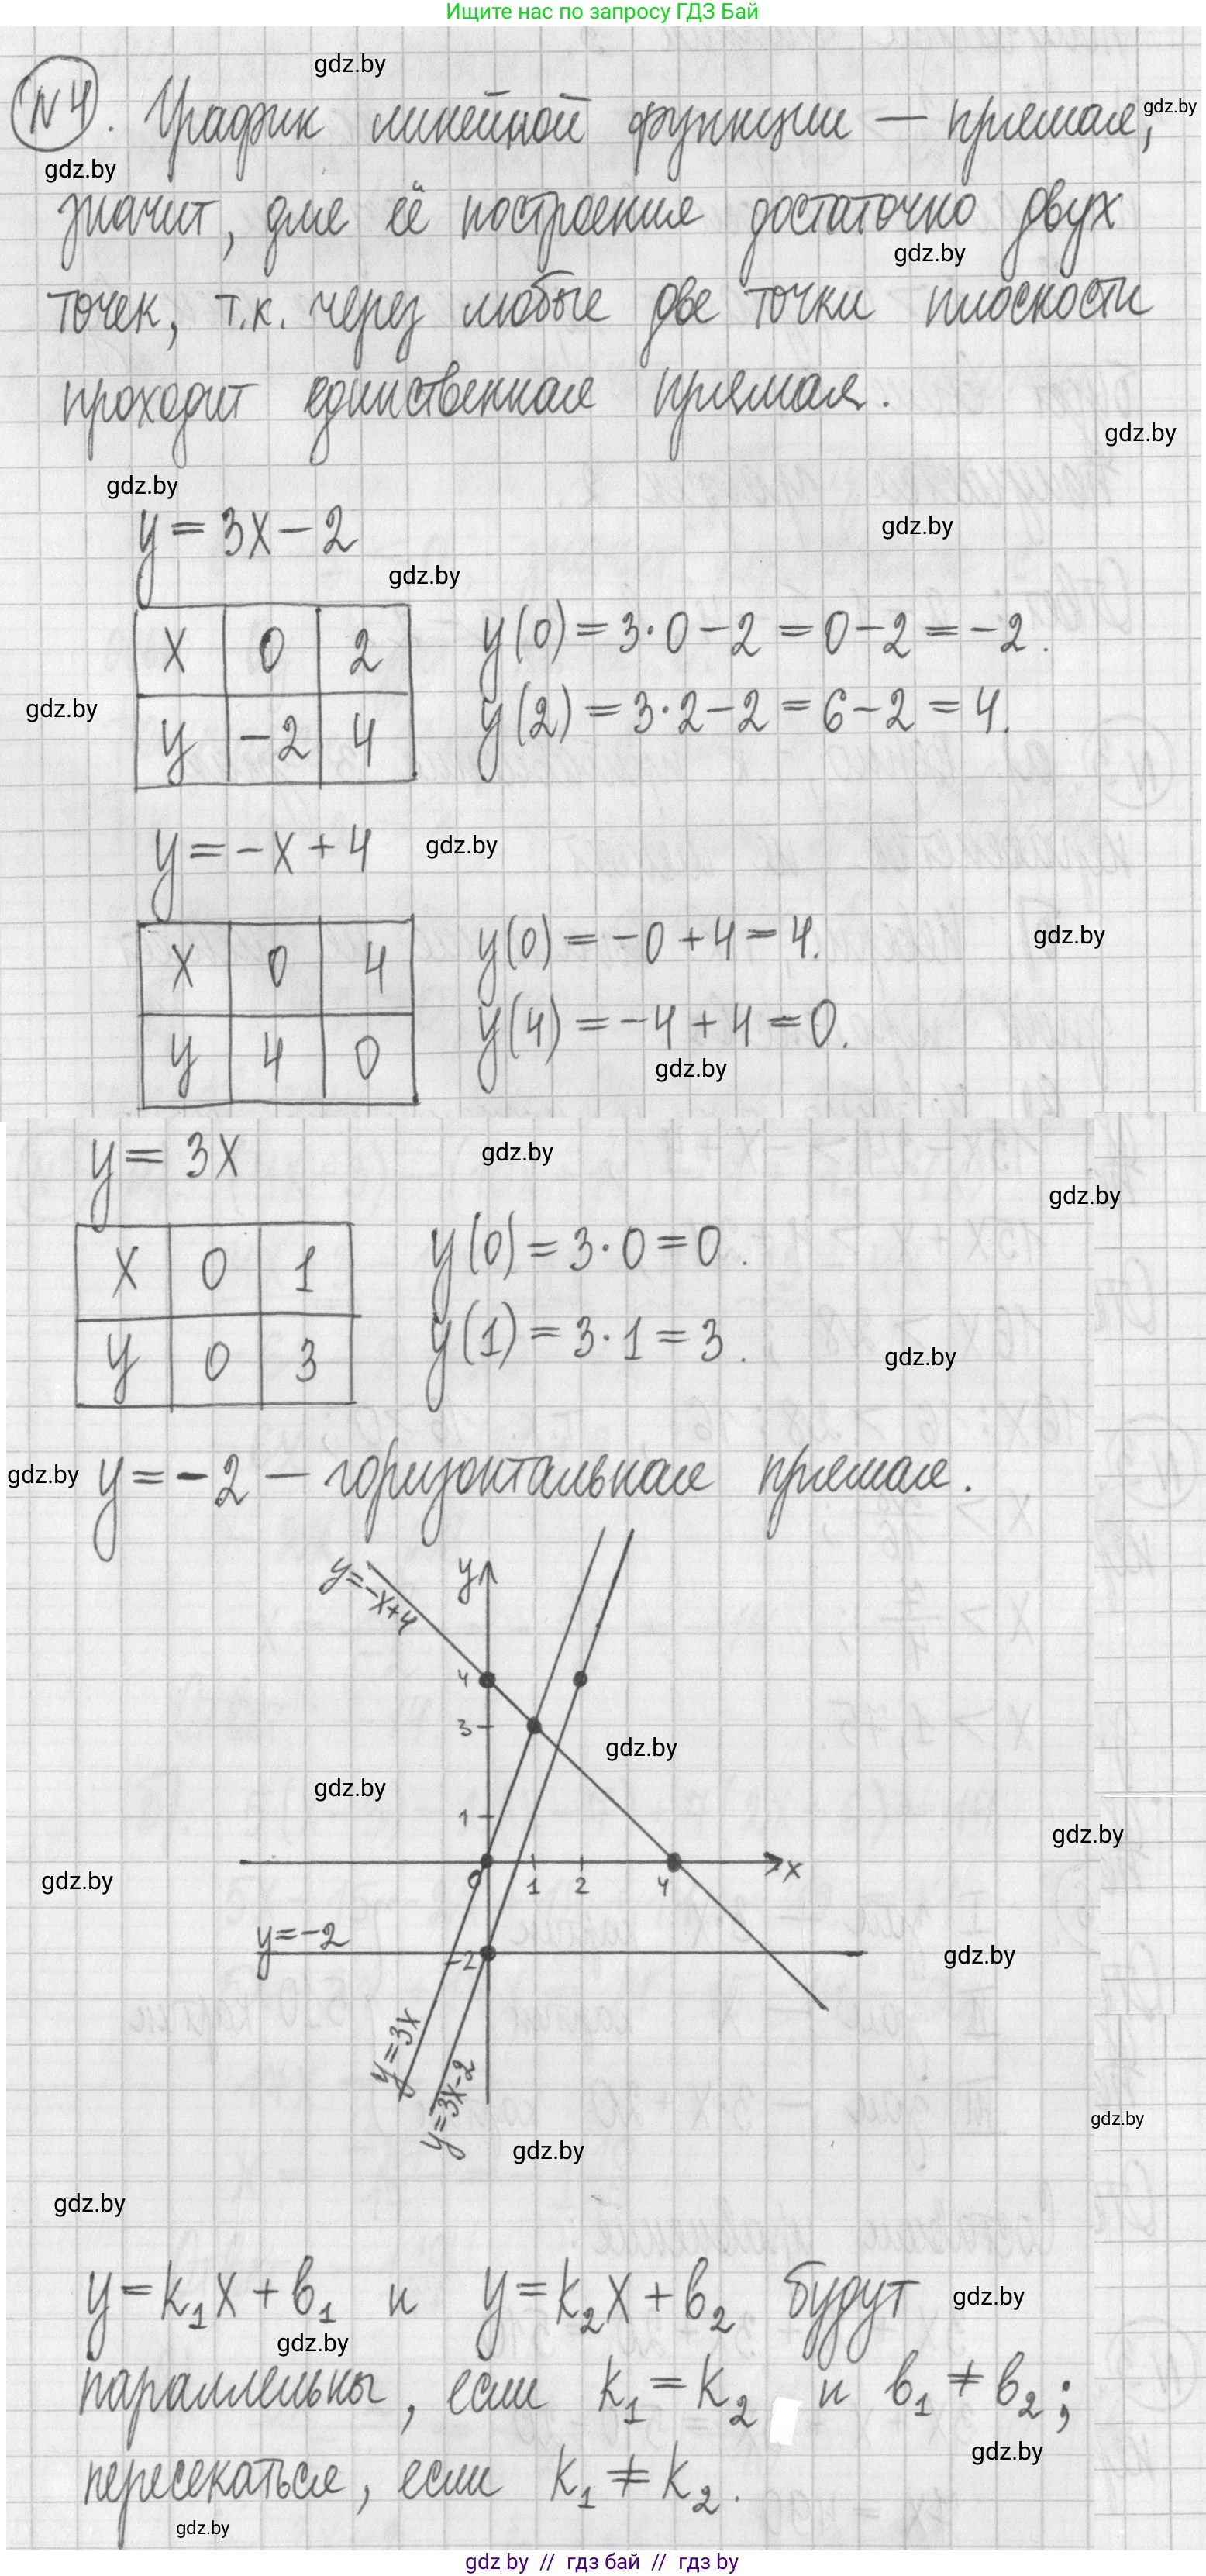 Ищите нас по запросу ГДЗ Бай
gdz.by
N4. График линейной функции — прямая,
gdz.by
gdz.by
значит, для её построения достаточно двух
gdz.by
точек, т.к. через любые две точки плоскости
проходит единственная прямая.
gdz.by
gdz.by
y = 3x - 2
gdz.by
gdz.by
x 0 2
y(0) = 3·0 - 2 = 0 - 2 = -2.
gdz.by
y -2 4
y(2) = 3·2 - 2 = 6 - 2 = 4.
y = -x + 4
gdz.by
x 0 4
y(0) = -0 + 4 = 4.
gdz.by
y 4 0
y(4) = -4 + 4 = 0.
gdz.by
y = 3x
gdz.by
gdz.by
x 0 1
y(0) = 3·0 = 0.
y 0 3
y(1) = 3·1 = 3.
gdz.by
gdz.by
y = -2 — горизонтальная прямая.
y=-x+4
y
4
3
gdz.by
gdz.by
1
gdz.by
gdz.by
0 1 2 4 x
y=-2
-2
gdz.by
y=3x
y=3x-2
gdz.by
gdz.by
gdz.by
y = k₁x + b₁ и y = k₂x + b₂ будут
gdz.by
gdz.by
параллельны, если k₁ = k₂ и b₁ ≠ b₂;
gdz.by
пересекаться, если k₁ ≠ k₂.
gdz.by
gdz by // гдз бай // гдз by